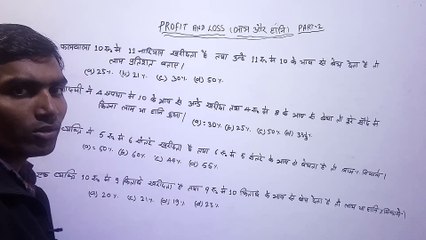 PROFIT AND LOSS (लाभ और हानि) PART-2
फलवाला 10 रू में 11 नारियल खरीदता है तथा उन्हें 11 रू में 10 के भाव से बेच देता है तो
लाभ प्रतिशत बताएं।
(a) 25% (b) 21% (c) 30% (d) 50%
आदमी ने 4 रूपया में 10 के भाव से अंडे खरीदा तथा 4 रू में 8 के भाव से बेचा तो इस सौदे में
कितना लाभ या हानि हुआ।
(a) 30% (b) 25% (c) 50% (d)
व्यक्ति ने 5 रू में 6 संतरे खरीदता है तथा 6 रू में 5 संतरे के भाव से बेचता है तो लाभ
(a) 50% (b) 60% (c) 44% (d) 55%
एक व्यक्ति 10 रू में 9 किताबें खरीदता है तथा 9 रू में 10 किताबें के भाव से बेच देता है तो लाभ या हानि
(a) 20% (b) 21% (c) 19% (d) 25%